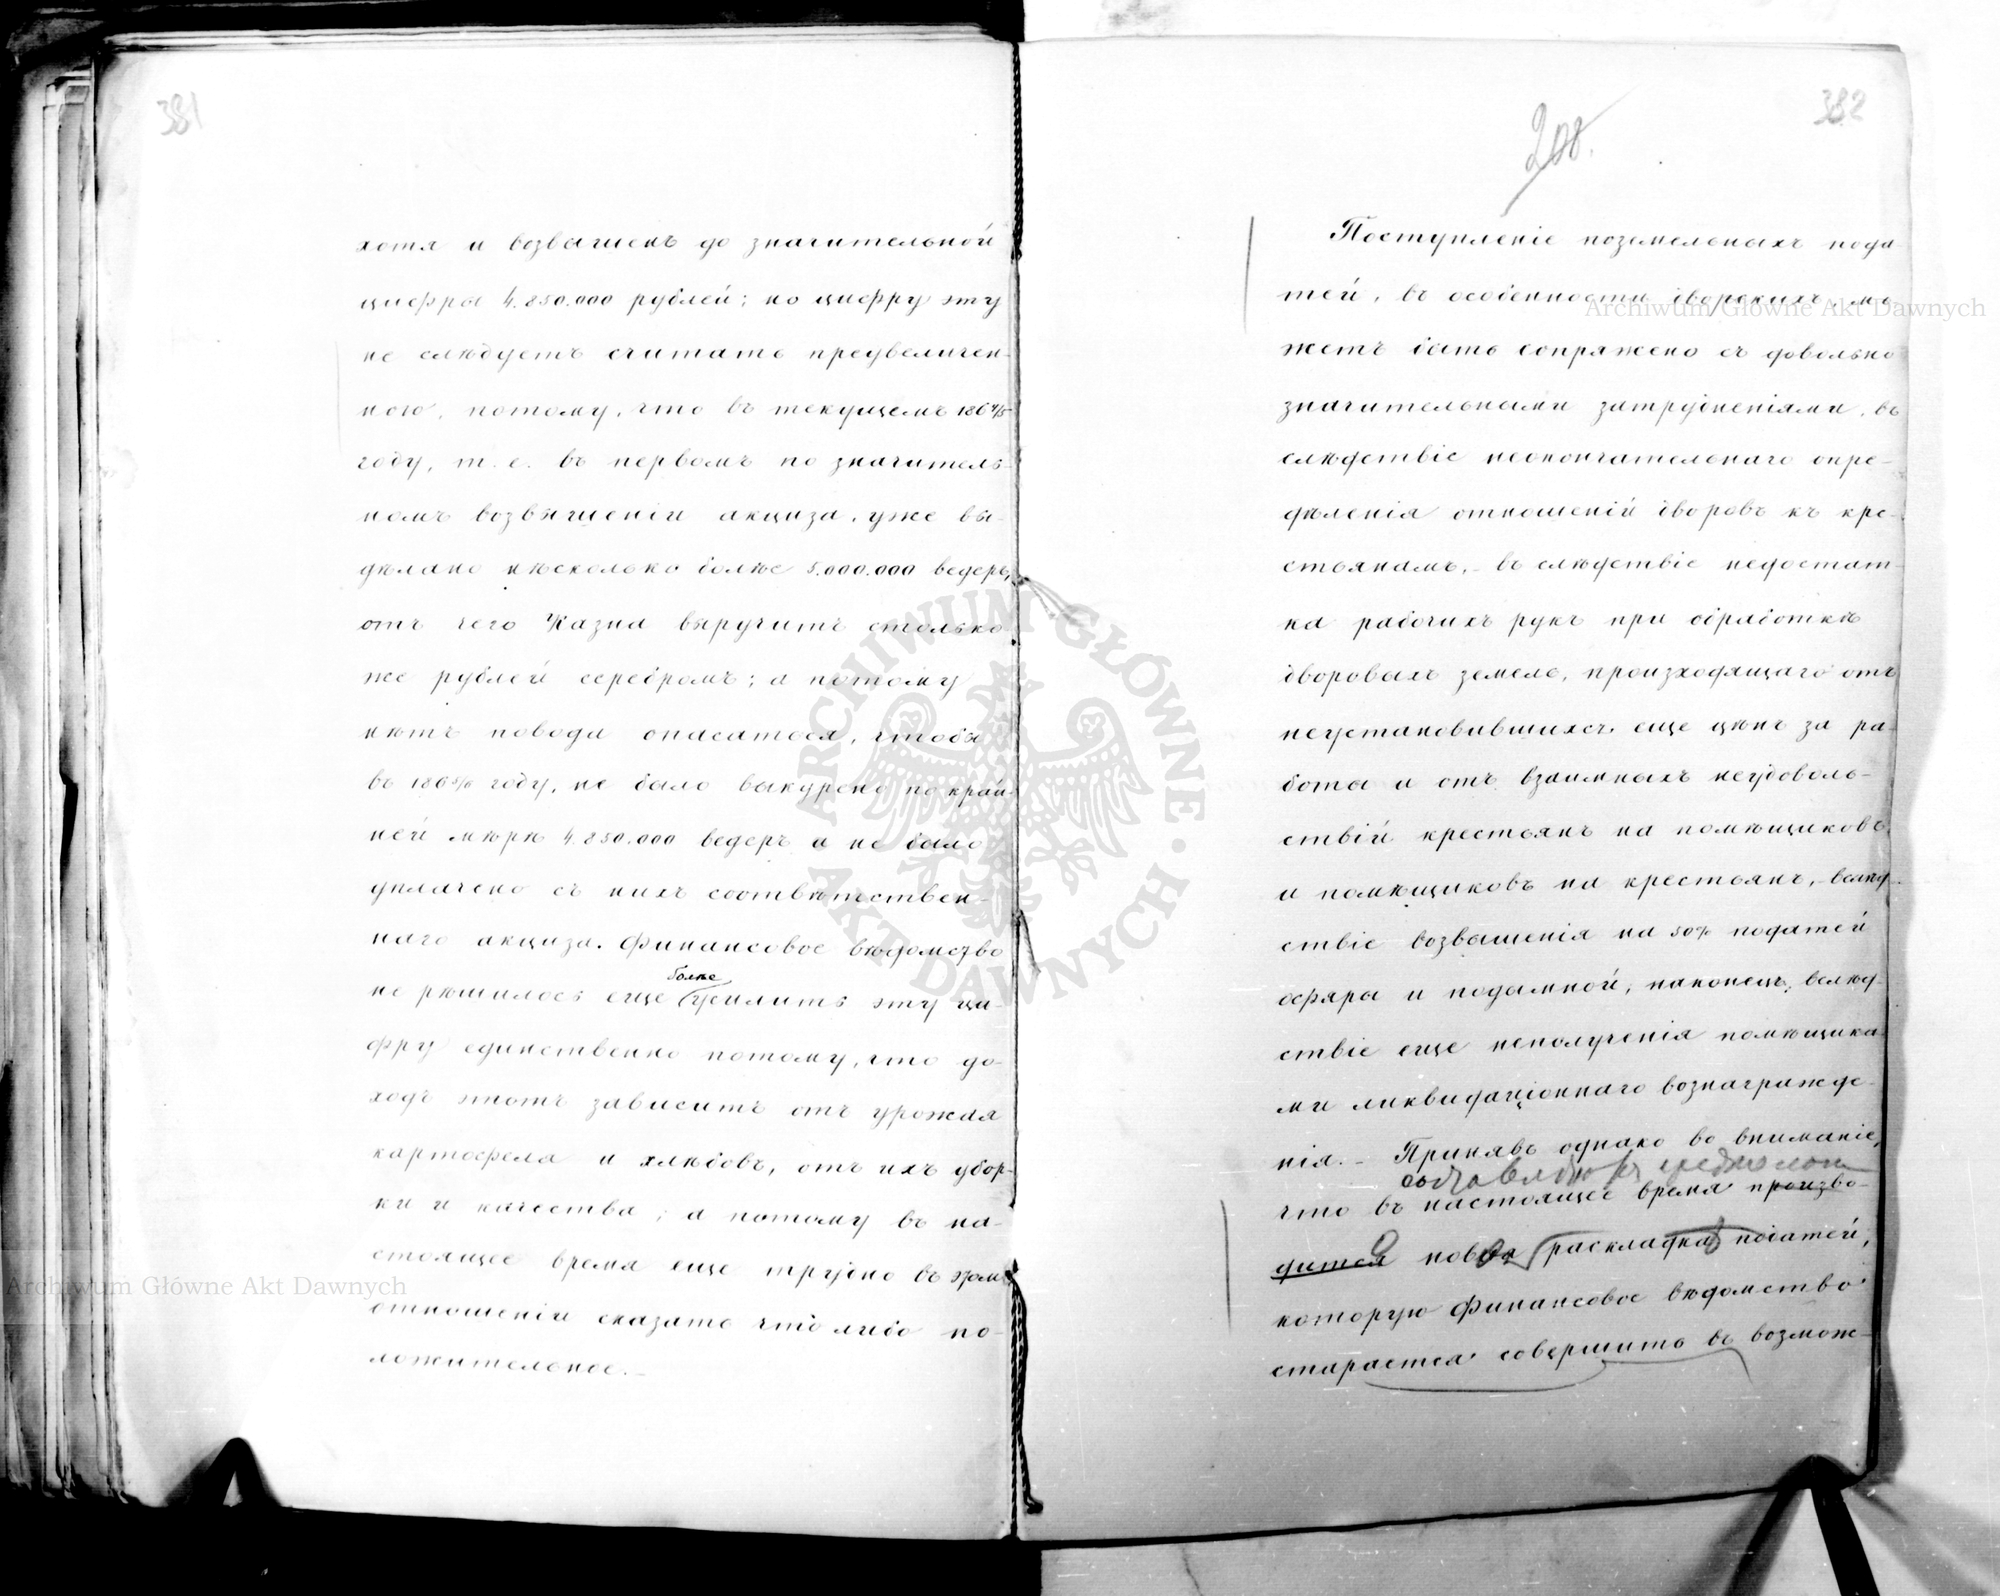 381
хотя и возвышенъ до значительной
цифры 4.850.000 рублей; но цифру эту
не слѣдуетъ считать преувеличен-
ною, потому, что въ текущемъ 1864/5
году, т. е. въ первомъ по значитель-
номъ возвышеніи акциза, уже вы-
дѣлано нѣсколько болѣе 5.000.000 ведеръ,
отъ чего Казна выручитъ столько
же рублей серебромъ; а потому
нѣтъ повода опасаться, чтобы
въ 1865/6 году, не было выкурено по край-
ней мѣрѣ 4.850.000 ведеръ а не было
уплачено съ нихъ соотвѣтствен-
наго акциза. Финансовое вѣдомство
болѣе
не рѣшилось еще усилить эту ци-
фру единственно потому, что до-
ходъ этотъ зависитъ отъ урожая
картофеля и хлѣбовъ, отъ ихъ убор-
ки и качества; а потому въ на-
стоящее время еще трудно въ этомъ
отношеніи сказать что либо по-
ложительное.-
382
208.
Поступленіе поземельныхъ пода
тей, въ особенности дворскихъ, мо-
жетъ быть сопряжено съ довольно
значительными затрудненіями, въ
слѣдствіе неокончательнаго опре-
дѣленія отношеній дворовъ къ кре-
стьянамъ,- въ слѣдствіе недостат-
ка рабочихъ рукъ при обработкѣ
дворовыхъ земель, произходящаго отъ
неустановившихся еще цѣнъ за ра-
боты и отъ взаимныхъ неудоволь-
ствій крестьянъ на помѣщиковъ,
и помѣщиковъ на крестьянъ,- вслѣд-
ствіе возвышенія на 50% податей
офяры и подымной, наконецъ, вслѣд-
ствіе еще неполученія помѣщика-
ми ликвидаціоннаго вознагражде-
нія.- Принявъ однако во вниманіе,
что въ настоящее время произво-
дится новая раскладка податей,
которую Финансовое вѣдомство
старается совершить въ возмож-
Archiwum Główne Akt Dawnych
Archiwum Główne Akt Dawnych
ARCHIWUM GŁÓWNE AKT DAWNYCH